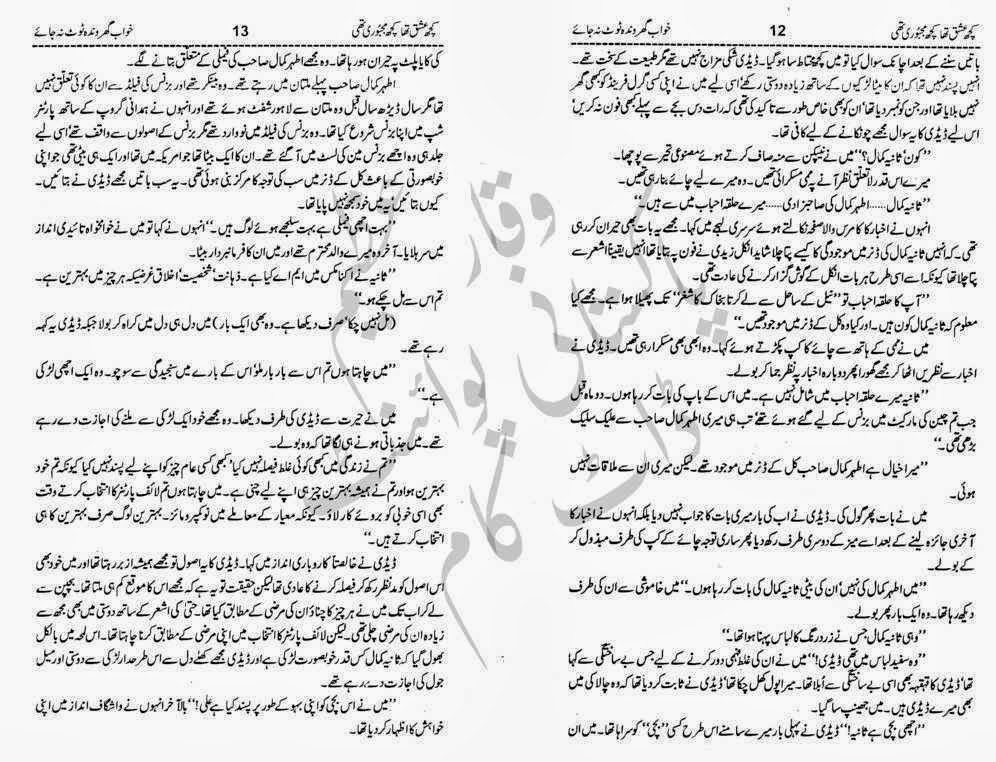 کچھ عشق تھا کچھ مجبوری تھی 12 خواب گھروندہ ٹوٹ نہ جائے
باتیں سننے کے بعد اچانک سوال کیا تو میں کچھ محتاط سا ہو گیا۔ ڈیڈی شکی مزاج نہیں تھے مگر طبیعت کے سخت تھے۔
انہیں پسند نہیں تھا کہ ان کا بیٹا لڑکیوں کے ساتھ زیادہ دوستی رکھے‘ اسی لیے میں نے اپنی کسی گرل فرینڈ کو کبھی گھر
نہیں بلایا تھا اور جن کو نمبر دیا تھا‘ ان کو بھی خاص طور سے تاکید کی تھی کہ رات دس بجے سے پہلے بھی فون نہ کریں‘
اس لیے ڈیڈی کا یہ سوال مجھے چونکانے کے لیے کافی تھا۔
”کون‘ ثانیہ کمال؟“ میں نے نیپکن سے منہ صاف کرتے ہوئے مصنوعی تحیر سے پوچھا۔
میرے اس قدر لاتعلق نظر آنے پہ ممی مسکرائی تھیں۔ وہ میرے لیے چائے بنا رہی تھیں۔
”ثانیہ کمال...... اظہر کمال کی صاحبزادی...... میرے حلقہ احباب میں سے ہیں۔“
انہوں نے اخبار کا کامرس والا صفحہ نکالتے ہوئے سرسری لہجے میں کہا۔ مجھے یہ بات بھی حیران کر رہی
تھی۔ کہ انہیں ثانیہ کمال کی ڈنر میں موجودگی کا کیسے پتا چلا شاید انکل زیدی نے فون پہ بتایا تھا انہیں یقیناً اشعر سے
پتا چلا تھا کیونکہ اسے اسی طرح ہر بات انکل کے گوش گزار کرنے کی عادت تھی۔
”آپ کا حلقہ احباب تو ”نیل کے ساحل سے لے کر تا بخاک کاشغر“ تک پھیلا ہوا ہے۔ مجھے کیا
معلوم کہ ثانیہ کمال کون ہیں۔ اور کیا وہ کل کے ڈنر میں موجود تھیں۔“
میں نے ممی کے ہاتھ سے چائے کا کپ پکڑتے ہوئے کہا۔ وہ ابھی بھی مسکرا رہی تھیں۔ ڈیڈی نے
اخبار سے نظریں اٹھا کر مجھے گھورا پھر دوبارہ اخبار پہ نظر جما کر بولے۔
”ثانیہ میرے حلقہ احباب میں شامل نہیں ہے۔ میں اس کے باپ کی بات کر رہا ہوں۔ دو ماہ قبل
جب تم چین کی مارکیٹ میں بزنس کے لیے گئے ہوئے تھے‘ تب ہی میری اظہر کمال صاحب سے علیک سلیک
بڑھی تھی۔“
”میرا خیال ہے اظہر کمال صاحب کل کے ڈنر میں موجود تھے۔ لیکن میری ان سے ملاقات نہیں
ہوئی۔
میں نے بات پھر گول کی۔ ڈیڈی نے اب کی بار میری بات کا جواب نہیں دیا بلکہ انہوں نے اخبار کا
آخری جائزہ لینے کے بعد اسے میز کے دوسری طرف رکھ دیا پھر ساری توجہ چائے کے کپ کی طرف مبذول کر
کے بولے۔
”میں اظہر کمال کی نہیں‘ ان کی بیٹی ثانیہ کمال کی بات کر رہا ہوں۔“ میں خاموشی سے ان کی طرف
دیکھ رہا تھا۔ وہ ایک بار پھر بولے۔
”وہی ثانیہ کمال جس نے زرد رنگ کا لباس پہنا ہوا تھا۔“
”وہ سفید لباس میں تھی ڈیڈی!“ میں نے ان کی غلط فہمی دور کرنے کے لیے جس بے ساختگی سے کہا
تھا‘ ڈیڈی کا قہقہہ بھی اسی بے ساختگی سے اُبلا تھا۔ میرا پول کھل چکا تھا‘ ڈیڈی نے ثابت کر دیا تھا کہ وہ چالاکی میں
بھی میرے ڈیڈی ہیں۔ میں جھینپ سا گیا۔
”اچھی بچی ہے ثانیہ!“ ڈیڈی نے پہلی بار میرے سامنے اس طرح کسی ”بچی“ کو سراہا تھا۔ میں ان
کچھ عشق تھا کچھ مجبوری تھی 13 خواب گھروندہ ٹوٹ نہ جائے
کی کایا پلٹ پہ حیران ہو رہا تھا۔ وہ مجھے اظہر کمال صاحب کی فیملی کے متعلق بتانے لگے۔
اظہر کمال صاحب پہلے ملتان میں رہتے تھے۔ وہ بینکر تھے اور بزنس کی فیلڈ سے ان کا کوئی تعلق نہیں
تھا مگر سال ڈیڑھ سال قبل وہ ملتان سے لاہور شفٹ ہوئے تھے اور انہوں نے ہمدانی گروپ کے ساتھ پارٹنر
شپ میں اپنا بزنس شروع کیا تھا۔ وہ بزنس کی فیلڈ میں نووارد تھے مگر بزنس کے اصولوں سے واقف تھے‘ اسی لیے
جلد ہی وہ اچھے بزنس مین کی لسٹ میں آ گئے تھے۔ ان کا ایک بیٹا تھا جو امریکہ میں تھا اور ایک ہی بیٹی تھی جو اپنی
خوبصورتی کے باعث کل کے ڈنر میں سب کی توجہ کا مرکز بنی ہوئی تھی۔ یہ سب باتیں مجھے ڈیڈی نے بتائیں۔
کیوں بتائیں‘ یہ میں خود سمجھ نہیں پایا تھا۔
”بہت اچھی فیملی ہے بہت سلجھے ہوئے لوگ ہیں۔“ انہوں نے کہا تو میں نے خوامخواہ تائیدی انداز
میں سر ہلایا۔ آخر وہ میرے والد محترم تھے اور میں ان کا فرمانبردار بیٹا۔
”ثانیہ نے اکنامکس میں ایم اے کیا ہے۔ ذہانت‘ شخصیت‘ اخلاق غرضیکہ ہر چیز میں بہترین ہے۔
تم اس سے مل چکے ہو۔“
(مل نہیں چکا‘ صرف دیکھا ہے۔ وہ بھی ایک بار) میں دل ہی دل میں کراہ کر بولا جبکہ ڈیڈی یہ کہہ
رہے تھے۔
”میں چاہتا ہوں تم اس سے بار بار ملو‘ اس کے بارے میں سنجیدگی سے سوچو۔ وہ ایک اچھی لڑکی
ہے۔“
میں نے حیرت سے ڈیڈی کی طرف دیکھا۔ وہ مجھے خود ایک لڑکی سے ملنے کی اجازت دے رہے
تھے۔ میں جذباتی ہونے ہی لگا تھا کہ وہ بولے۔
”تم نے زندگی میں کبھی کوئی غلط فیصلہ نہیں کیا‘ کبھی کسی عام چیز کو اپنے لیے پسند نہیں کیا کیونکہ تم خود
بہترین ہو اور تم نے ہمیشہ بہترین چیز ہی اپنے لیے چنی ہے۔ میں چاہتا ہوں تم لائف پارٹنر کا انتخاب کرتے وقت
بھی اسی خوبی کو بروئے کار لاؤ۔ کیونکہ معیار کے معاملے میں نو کمپرومائز۔ بہترین لوگ صرف بہترین کا ہی
انتخاب کرتے ہیں۔“
ڈیڈی نے خالصتاً کاروباری انداز میں کہا۔ ڈیڈی کا یہ اصول تو مجھے ہمیشہ ازبر رہتا تھا اور میں خود بھی
اس اصول کو مدنظر رکھ کر فیصلہ کرنے کا عادی تھا لیکن حقیقت تو یہ ہے کہ مجھے اس کا موقع کم ہی ملتا تھا۔ بچپن سے
لے کر اب تک میں نے ہر چیز کا چناؤ ان کی مرضی کے مطابق کیا تھا۔ حتیٰ کہ اشعر کے ساتھ دوستی میں بھی مجھ سے
زیادہ ان کی مرضی چلی تھی۔ لیکن لائف پارٹنر کا انتخاب میں اپنی مرضی کے مطابق کرنا چاہتا تھا۔ اس لمحہ میں بالکل
بھول گیا کہ ثانیہ کمال کس قدر خوبصورت لڑکی ہے اور ڈیڈی مجھے کھلے دل سے اس طرحدار لڑکی سے دوستی اور میل
جول کی اجازت دے رہے تھے۔
”میں نے اس بچی کو اپنی بہو کے طور پر پسند کیا ہے علی!“ بالآخر انہوں نے واشگاف انداز میں اپنی
خواہش کا اظہار کر دیا تھا۔
وقار عظیم
پاکستانی پوائنٹ
ڈاٹ کام